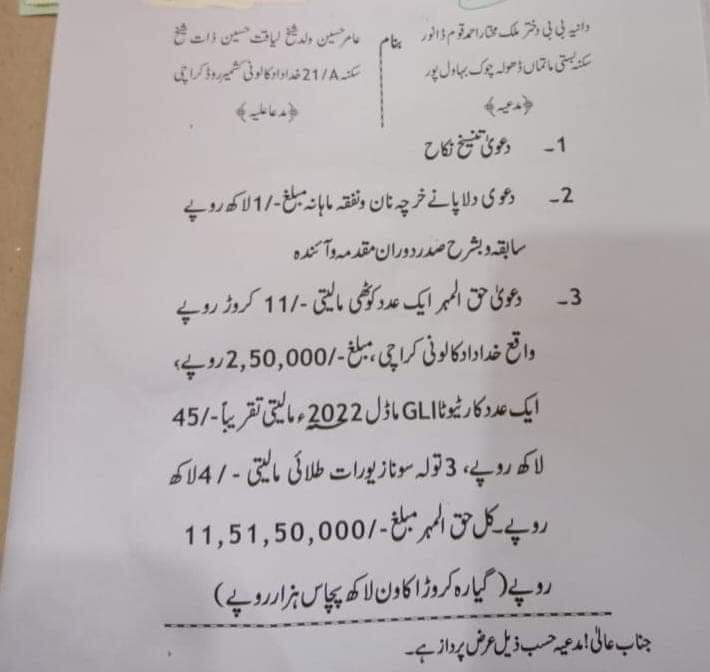 دانیہ بی بی دختر ملک مختار احمد قوم ڈانور
سکنہ بستی ماتماں ڈھولہ چوک بہاول پور
﴿مدعیہ﴾
بنام
عامر حسین ولد شیخ لیاقت حسین ذات شیخ
سکنہ 21/A خداداد کالونی کشمیر روڈ کراچی
﴿مدعا علیہ﴾
1۔ دعویٰ تنسیخ نکاح
2۔ دعوی دلاپانے خرچہ نان و نفقہ ماہانہ مبلغ -/1 لاکھ روپے
سابقہ و بشرح صدر دوران مقدمہ و آئندہ
3۔ دعویٰ حق المہر ایک عدد کوٹھی مالیتی -/11 کروڑ روپے
واقع خداداد کالونی کراچی، مبلغ -/2,50,000 روپے،
ایک عدد کار ٹیوٹا GLI ماڈل 2022ء مالیتی تقریباً -/45
لاکھ روپے، 3 تولہ سونا زیورات طلائی مالیتی -/4 لاکھ
روپے۔کل حق المہر مبلغ -/11,51,50,000
روپے (گیارہ کروڑ اکاون لاکھ پچاس ہزار روپے)
جناب عالیٰ! مدعیہ حسب ذیل عرض پرداز ہے۔